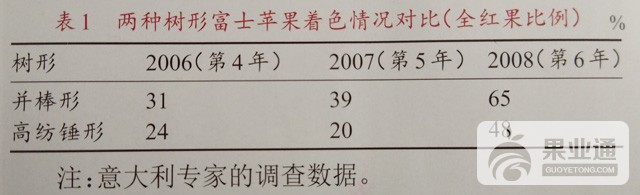 表1 两种树形富士苹果着色情况对比(全红果比例) %
树形 2006(第4年) 2007(第5年) 2008(第6年)
并棒形 31 39 65
高纺锤形 24 20 48
注:意大利专家的调查数据。
果业通
GUOYETONG.COM